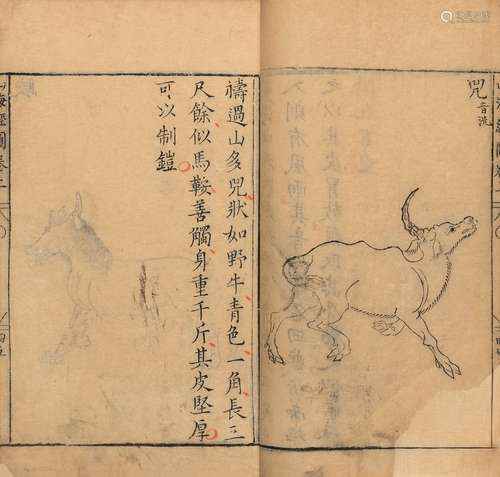 兕音洸
禱過山多兕狀如野牛青色一角長三
尺餘似馬鞍善觸身重千斤其皮堅厚
可以制鎧